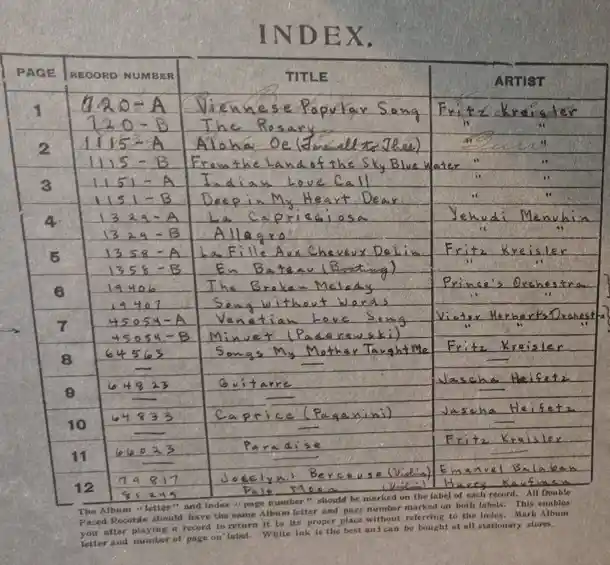 INDEX.
PAGE RECORD NUMBER TITLE ARTIST
1 720-A Viennese Popular Song Fritz Kreisler
720-B The Rosary " "
2 1115-A Aloha Oe (Farewell to Thee)
1115-B From the Land of the Sky Blue Water " "
3 1151-A Indian Love Call " "
1151-B Deep in My Heart Dear " "
4 1329-A La Capriciosa Yehudi Menuhin
1329-B Allegro " "
5 1358-A La Fille Aux Cheveux De Lin Fritz Kreisler
1358-B En Bateau (Boating) " "
6 19406 The Broken Melody Prince's Orchestra
19407 Song Without Words " "
7 45054-A Venetian Love Song Victor Herberts Orchestra
45054-B Minuet (Paderewski) " "
8 64563 Songs My Mother Taught Me Fritz Kreisler
9 64823 Guitarre Jascha Heifetz
10 64833 Caprice (Paganini) Jascha Heifetz
11 66023 Paradise Fritz Kreisler
12 79817 Jocelyn: Berceuse (Violin) Emanuel Balaban
81249 Pale Moon (Violin) Harry Kaufman
The Album "letter" and index "page number" should be marked on the label of each record. All Double
Faced Records should have the same Album letter and page number marked on both labels. This enables
you after playing a record to return it to its proper place without referring to the index. Mark Album
letter and number of page on label. White ink is the best and can be bought at all stationary stores.